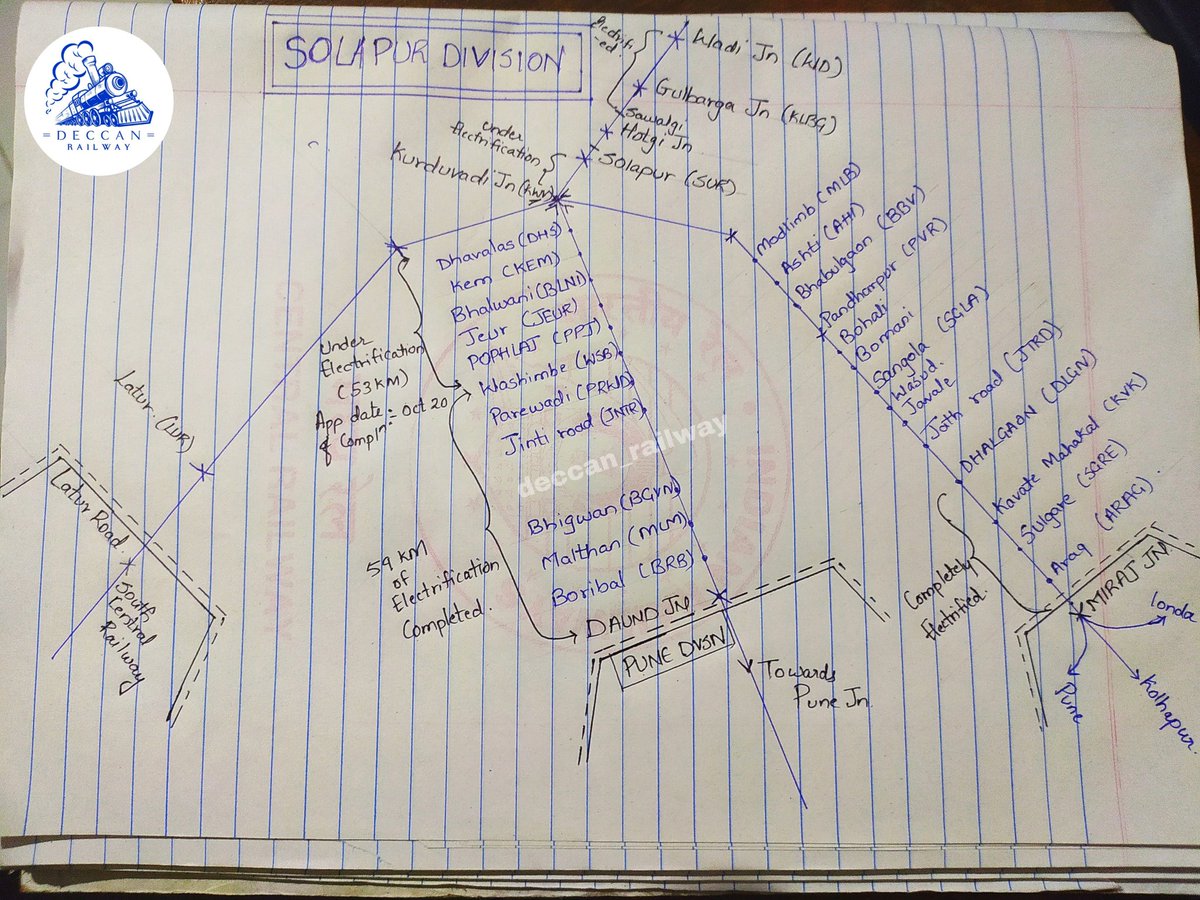 = DECCAN =
RAILWAY
SOLAPUR DIVISION
Electrifi
-ed
Wadi Jn (WD)
Gulbarga Jn (KLBG)
Sawalgi
Hotgi Jn
Solapur (SUR)
under
Electrification
Kurduvadi Jn (KWV)
Dhavalas (DHS)
Kem (KEM)
Bhalwani (BLNI)
Jeur (JEUR)
POPHLAJ (PPJ)
Washimbe (WSB)
Parewadi (PRWD)
Jinti road (JNTR)
Bhigwan (BGVN)
Malthan (MLM)
Boribal (BRB)
DAUND JN
PUNE DVSN
Towards
Pune Jn
Under
Electrification
(53 KM)
App date = Oct 20
of Compln
59 KM
of
Electrification
Completed.
Latur. (LUR)
Latur Road.
South
Central
Railway
Modlimb (MLB)
Ashti (AHI)
Bhabulgaon (BBV)
Pandharpur (PVR)
Bohali
Bomani
Sangola (SGLA)
Wasud.
Javale
Jath road (JTRD)
DHALGAON (DLGN)
Kavate Mahakal (KVK)
Sulgare (SGRE)
Arag (ARAG).
Completely
Electrified.
MIRAJ JN
londa
Pune
Kolhapur.
deccan_railway